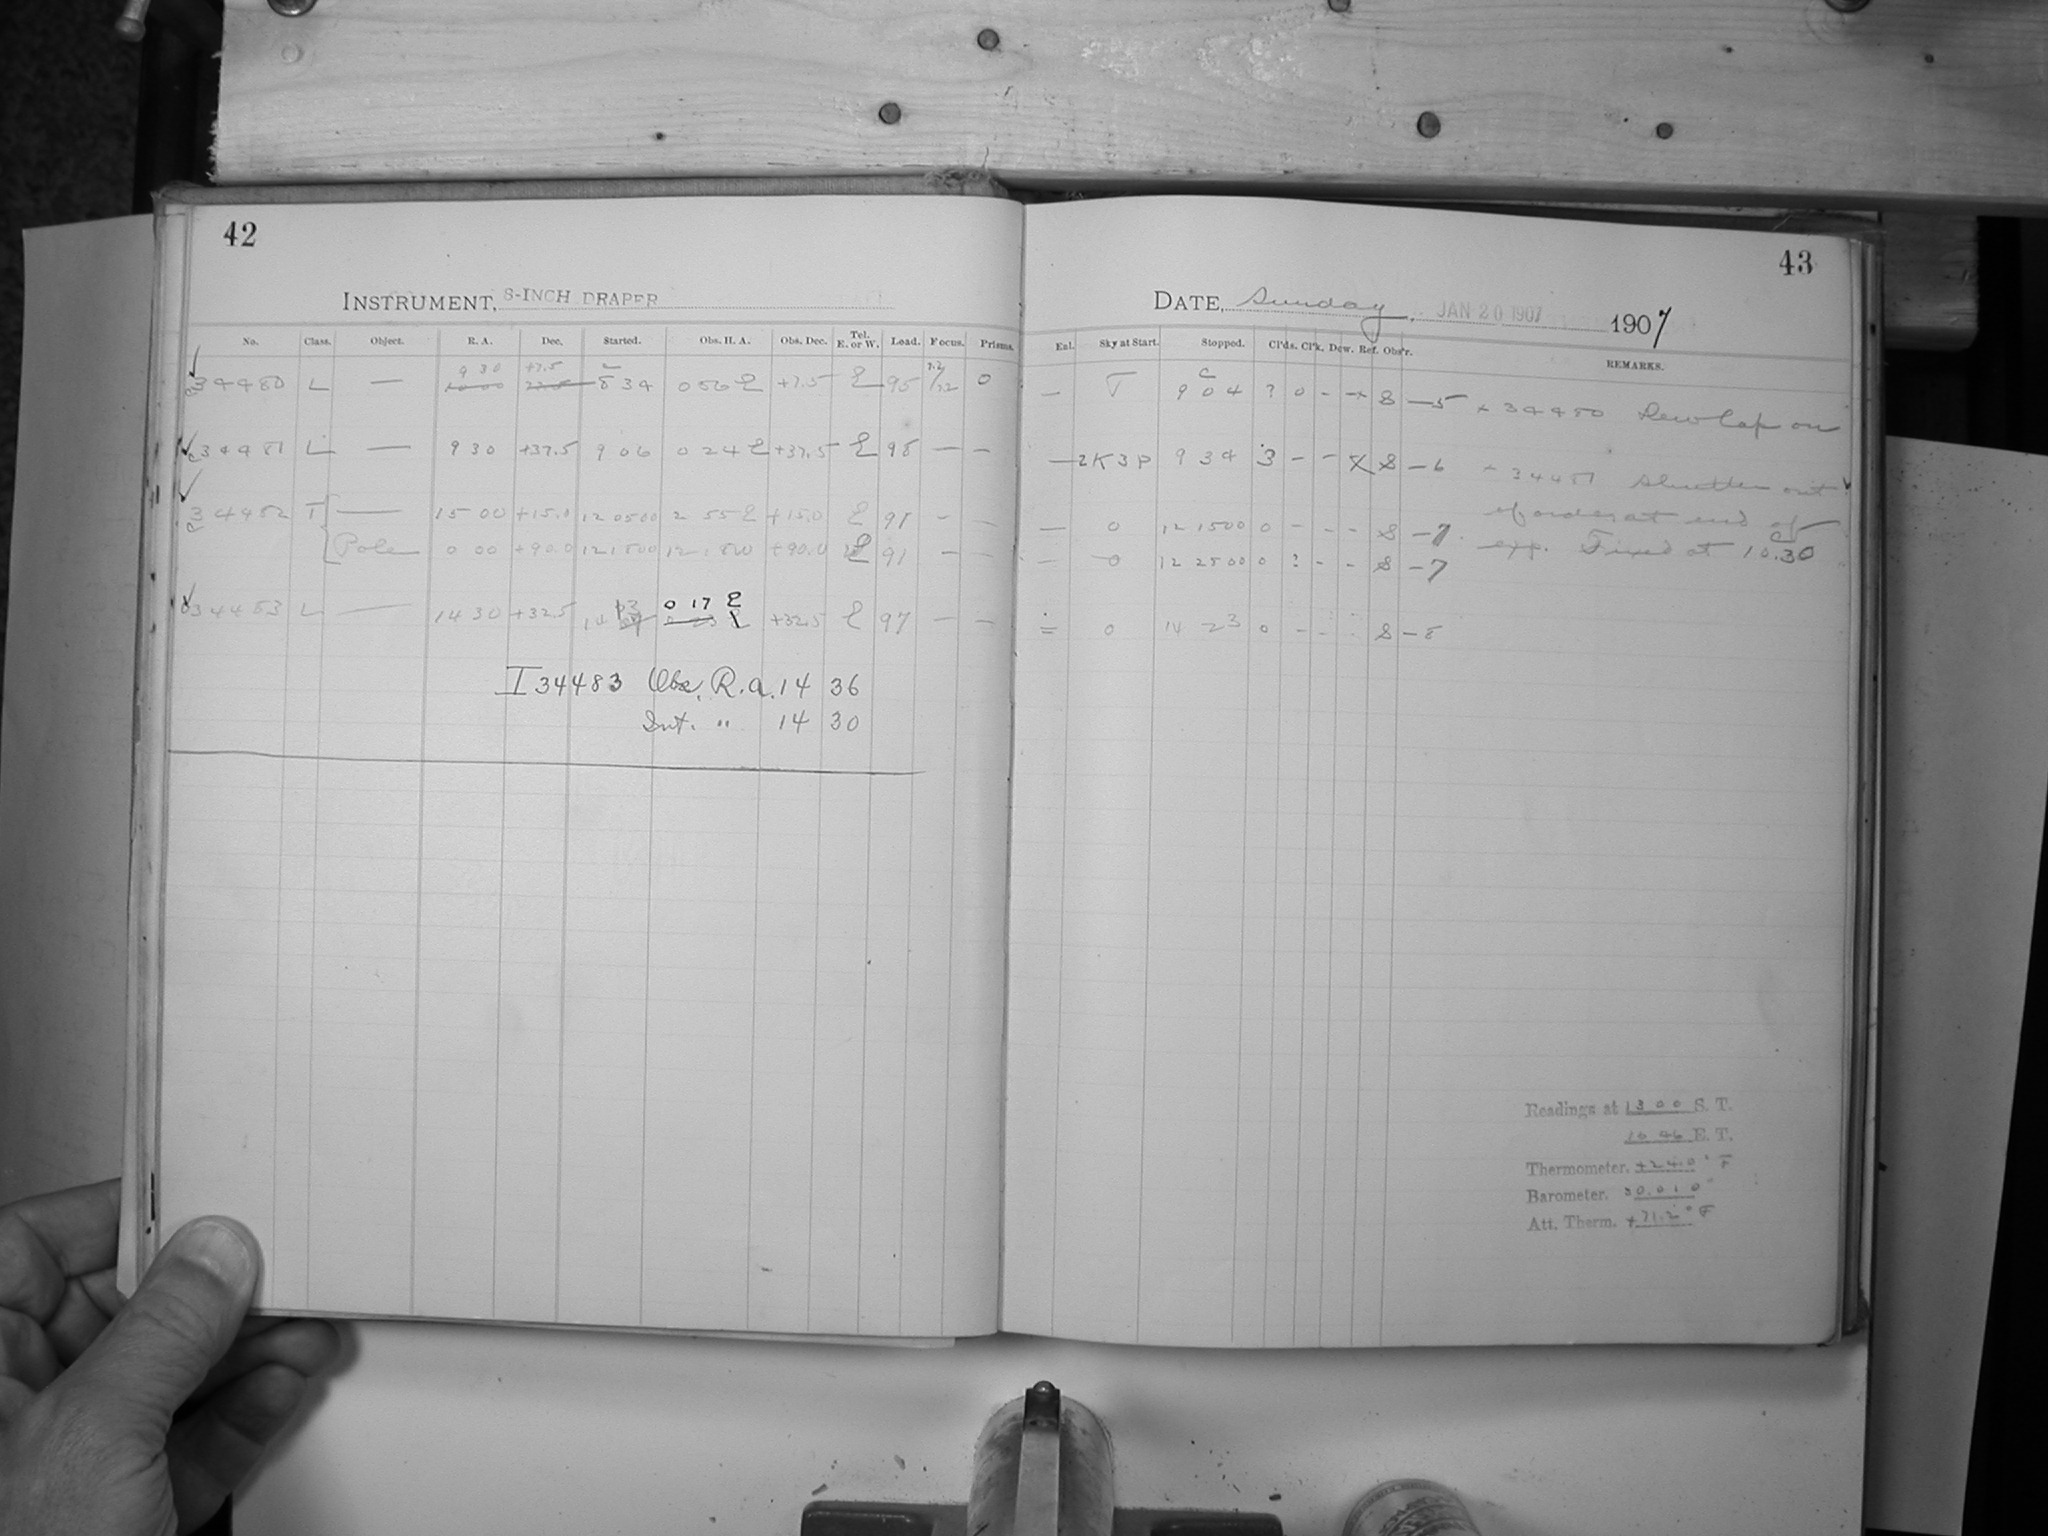 42
INSTRUMENT, 8-INCH DRAPER
No. Class. Object. R. A. Dec. Started. Obs. H. A. Obs. Dec. Tel. E. or W. Load. Focus. Prisms.
9 30 +7.5
34480 L — 8 34 0 56 E +7.5 E 95 0
34481 L — 9 30 +37.5 9 06 0 24 E +37.5 E 98 — —
34482 T — 15 00 +15.0 12 05 00 2 55 E +15.0 E 91 - -
Pole 0 00 +90.0 12 18 00 12 18 00 +90.0 E 91 — —
34483 L — 14 30 +32.5 14 13 0 17 E +32.5 E 97 — —
I 34483 Obs. R.A. 14 36
Int. " 14 30
43
DATE, Sunday, JAN 20 1907 1907
Enl. Sky at Start. Stopped. Cl'ds. Cl'k. Dew. Ref. Obs'r. REMARKS.
— T 9 04 ? 0 - - S — 5 × 34480 Dew Cap on
— 2K3P 9 34 3 - - × S — 6 × 34481 Shutter out
of order at end of
— 0 12 15 00 0 - - - S — 7
exp. Fixed at 10.30
— 0 12 28 00 0 : - - S — 7
= 0 14 23 0 - - : S — 8
Readings at 13 00 S. T.
E. T.
Thermometer. +24.0° F
Barometer. 30.010"
Att. Therm. +71.2° F